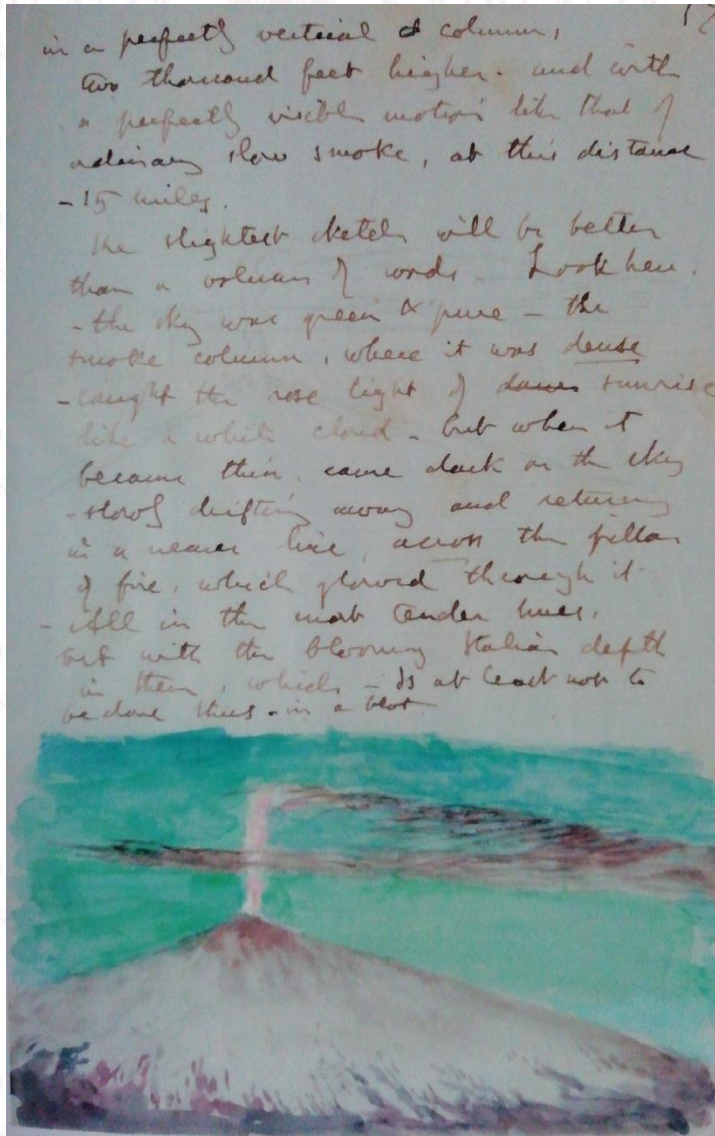 in a perfectly vertical column,
two thousand feet higher. and with
a perfectly visible motion like that of
ordinary slow smoke, at this distance
- 15 miles.
The slightest sketch will be better
than a volume of words. Look here.
- the sky was green & pure - the
smoke column, where it was dense
- caught the rose light of dawn sunrise
like a white cloud - but when it
became thin, came dark on the sky
- slowly drifting away and returning
in a nearer line, across the pillar
of fire, which glowed through it
- All in the most tender hues.
but with the blooming Italian depth
in them, which - Is at least not to
be done thus - in a blot